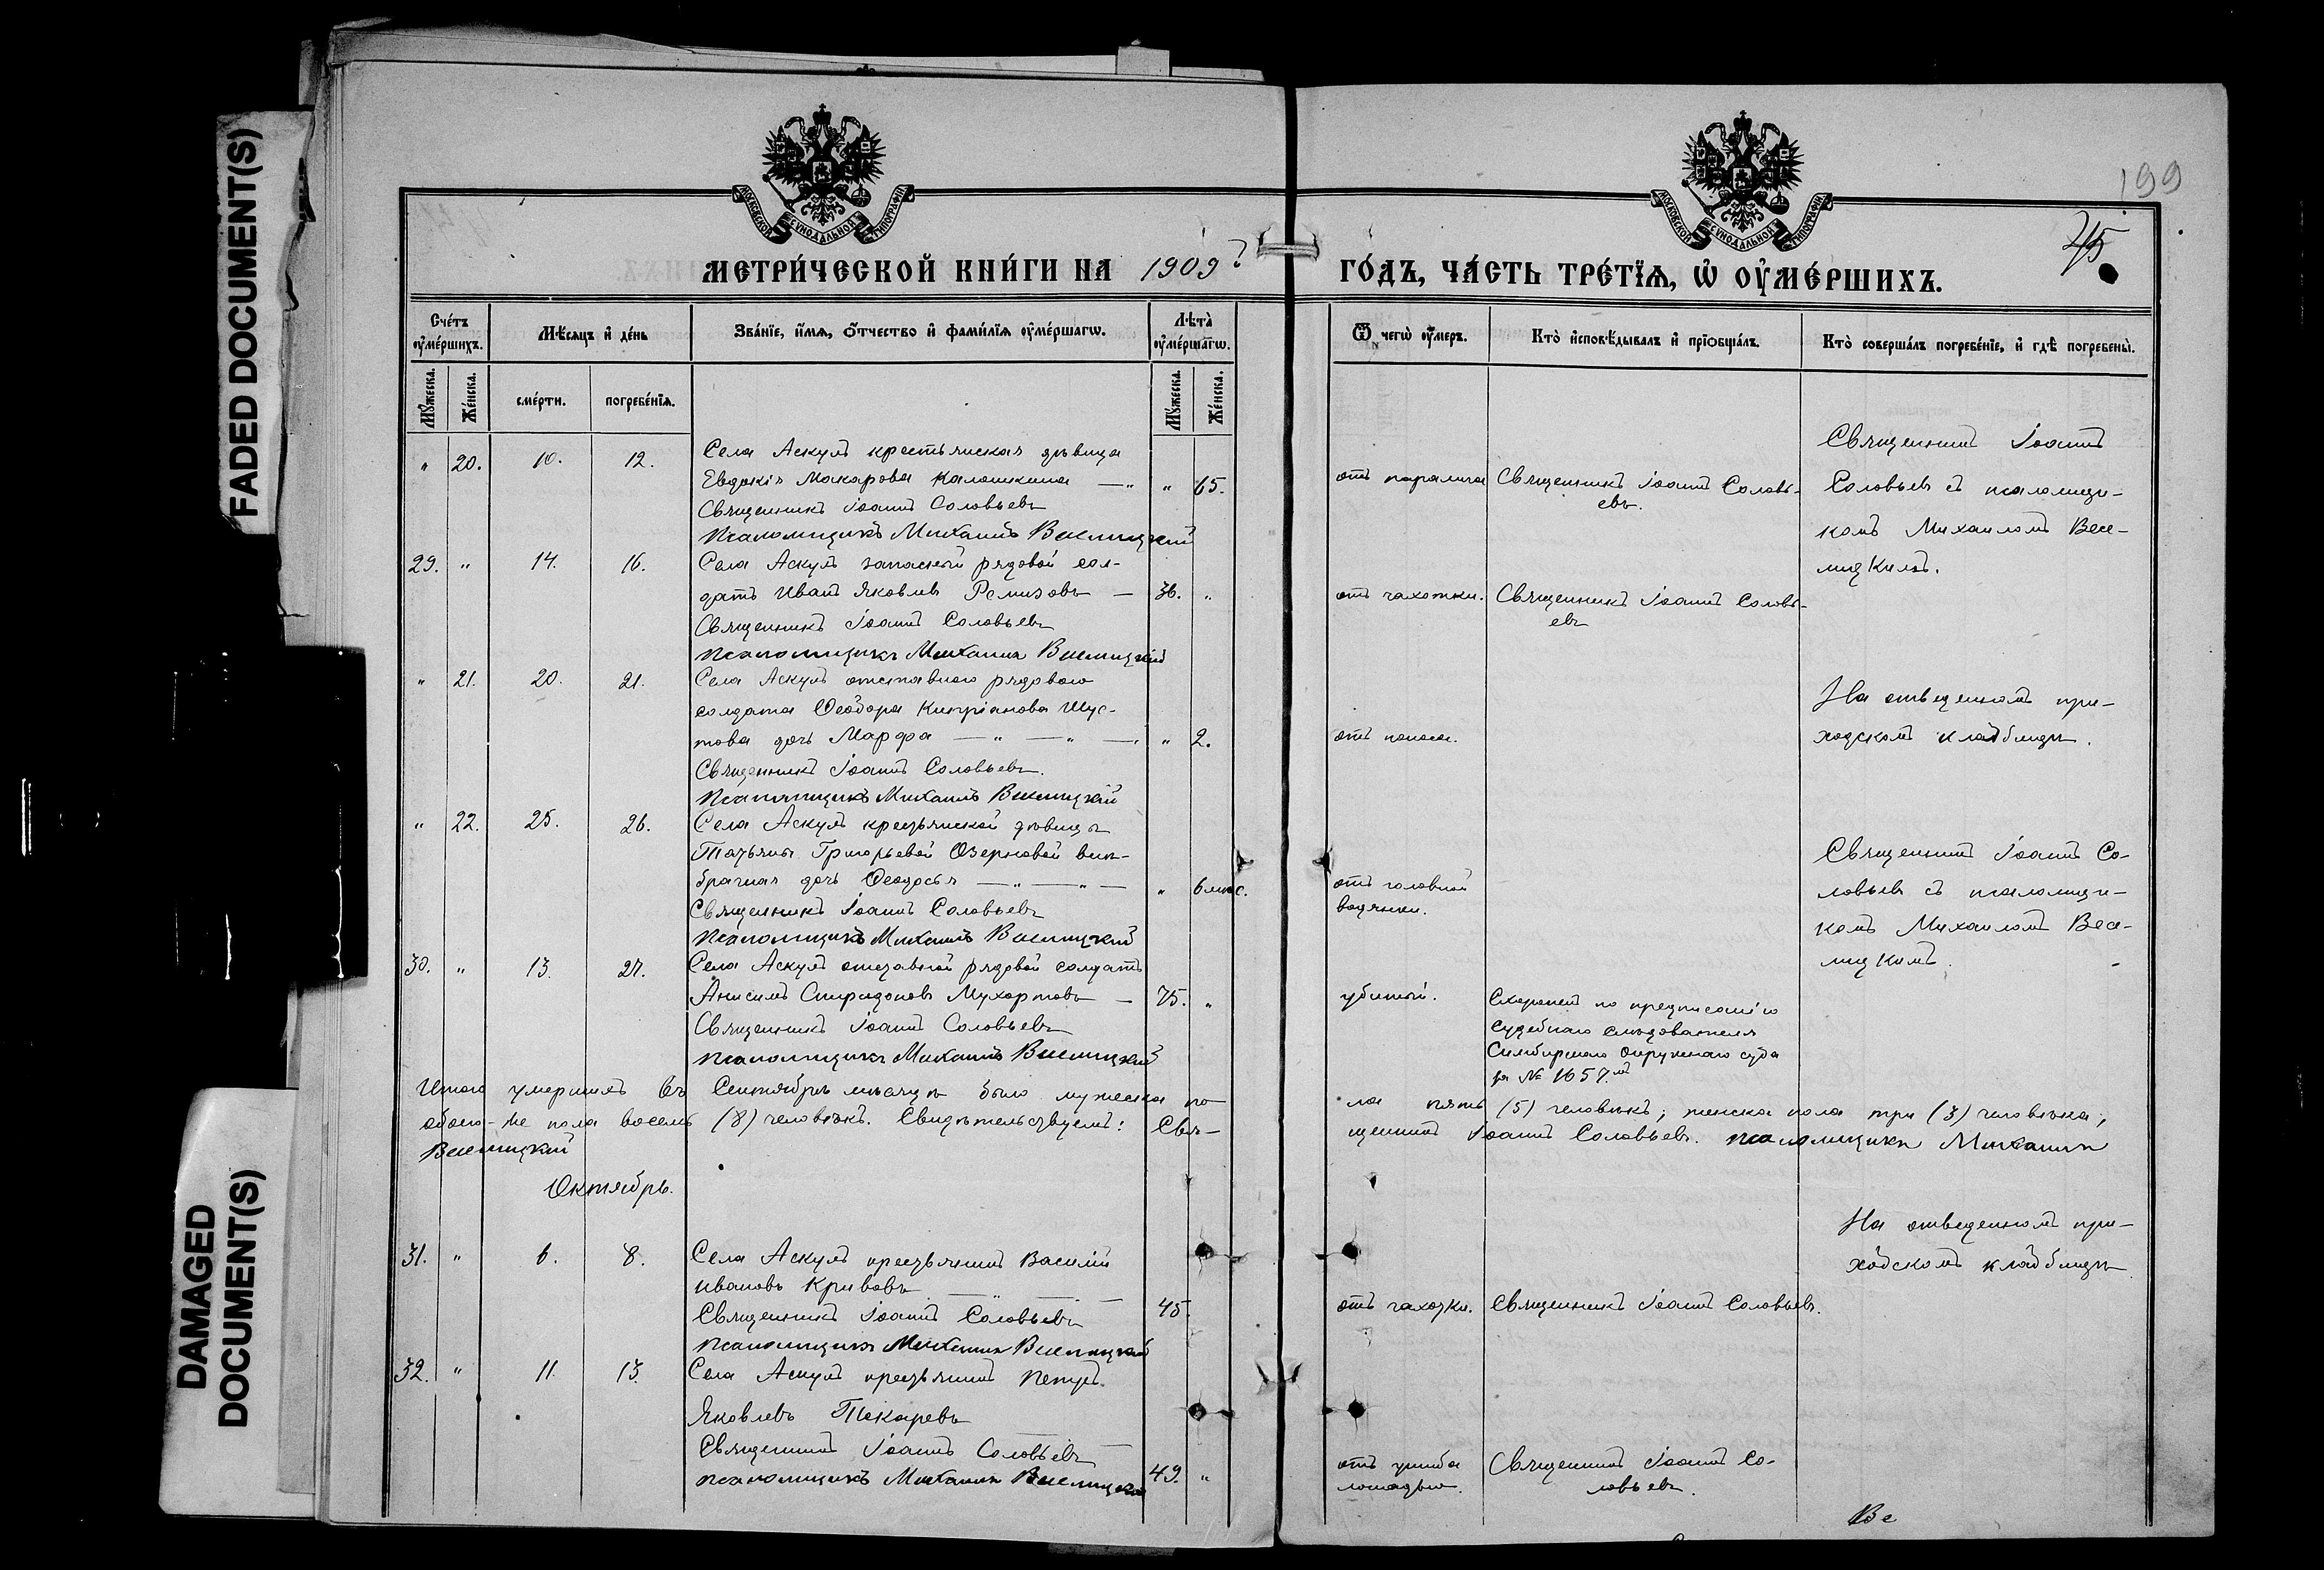 FADED DOCUMENT(S)
DAMAGED DOCUMENT(S)
199
75
МОСКОВСКОЙ СѴНОДАЛЬНОЙ ТИПОГРАФІИ
МОСКОВСКОЙ СѴНОДАЛЬНОЙ ТИПОГРАФІИ
МЕТРИ́ЧЕСКОЙ КНИ́ГИ НА 1909 г
ГО́ДЪ, ЧА́СТЬ ТРЕ́ТЇѦ, Ѡ҆ ОУ҆МЕ́РШИХЪ.
Сче́тъ оу҆ме́ршихъ.
Мꙋ́жеска.
Же́нска.
Мѣ́сяцъ и҆ де́нь
сме́рти.
погребе́нїѧ.
Зва́нїе, и҆́мѧ, ѻ҆́тчество и҆ фами́лїѧ оу҆ме́ршагѡ.
Лѣта̀ оу҆ме́ршагѡ.
Мꙋ́жеска.
Же́нска.
Ѿ чегѡ̀ оу҆́меръ.
Кто̀ и҆сповѣ́дывалъ и҆ прїѡбща́лъ.
Кто̀ соверша́лъ погребе́нїе, и҆ гдѣ̀ погребены̀.
" 20. 10. 12. Села Аскулъ крестьянская дѣвица
Евдокія Макарова Калашкина — " " 65. отъ паралича Священникъ Іоаннъ Соловь-
евъ.
Священникъ Іоаннъ Соловьевъ
Псаломщикъ Михаилъ Веселицкій
Священникъ Іоаннъ
Соловьевъ съ псаломщи-
комъ Михаиломъ Весе-
лицкимъ.
29. " 14. 16. Села Аскулъ запасной рядовой сол-
датъ Иванъ Яковлевъ Ремизовъ — 36. " отъ чахотки. Священникъ Іоаннъ Соловь-
евъ
Священникъ Іоаннъ Соловьевъ
Псаломщикъ Михаилъ Веселицкій
" 21. 20. 21. Села Аскулъ отставного рядового
солдата Ѳеодора Кипріанова Шус-
това дочь Марѳа — " — " — " 2. отъ поноса.
Священникъ Іоаннъ Соловьевъ.
Псаломщикъ Михаилъ Веселицкій
На отведенномъ при-
ходскомъ кладбищѣ.
" 22. 25. 26. Села Аскулъ крестьянской дѣвицы
Татьяны Григорьевой Озерновой внѣ-
брачная дочь Ѳеодосья — " — " — " 6 мѣс. отъ головной
водянки.
Священникъ Іоаннъ Соловьевъ
Псаломщикъ Михаилъ Веселицкій
Священникъ Іоаннъ Со-
ловьевъ съ псаломщи-
комъ Михаиломъ Весе-
лицкимъ.
30. " 13. 27. Села Аскулъ отставной рядовой солдатъ
Анисимъ Спиридоновъ Мухортовъ — 75. " убитый.
Священникъ Іоаннъ Соловьевъ
Псаломщикъ Михаилъ Веселицкій
Схороненъ по предписанію
Судебнаго слѣдователя
Симбирскаго Окружнаго суда
за № 1657.мъ
Итого умершихъ въ Сентябрѣ мѣсяцѣ было мужеска по-
ла пять (5) человѣкъ; женска пола три (3) человѣка;
обоего-же пола восемь (8) человѣкъ. Свидѣтельствуемъ: Свя-
щенникъ Іоаннъ Соловьевъ. Псаломщикъ Михаилъ
Веселицкій
Октябрь.
31. " 6. 8. Села Аскулъ крестьянинъ Василій
Ивановъ Кривовъ
Священникъ Іоаннъ Соловьевъ 45. отъ чахотки. Священникъ Іоаннъ Соловьевъ.
Псаломщикъ Михаилъ Веселицкій
На отведенномъ при-
ходскомъ кладбищѣ
32. " 11. 13. Села Аскулъ крестьянинъ Петръ
Яковлевъ Токаревъ
Священникъ Іоаннъ Соловьевъ
Псаломщикъ Михаилъ Веселицкій 49. " отъ ушиба
лошадью. Священникъ Іоаннъ Со-
ловьевъ.
Ве